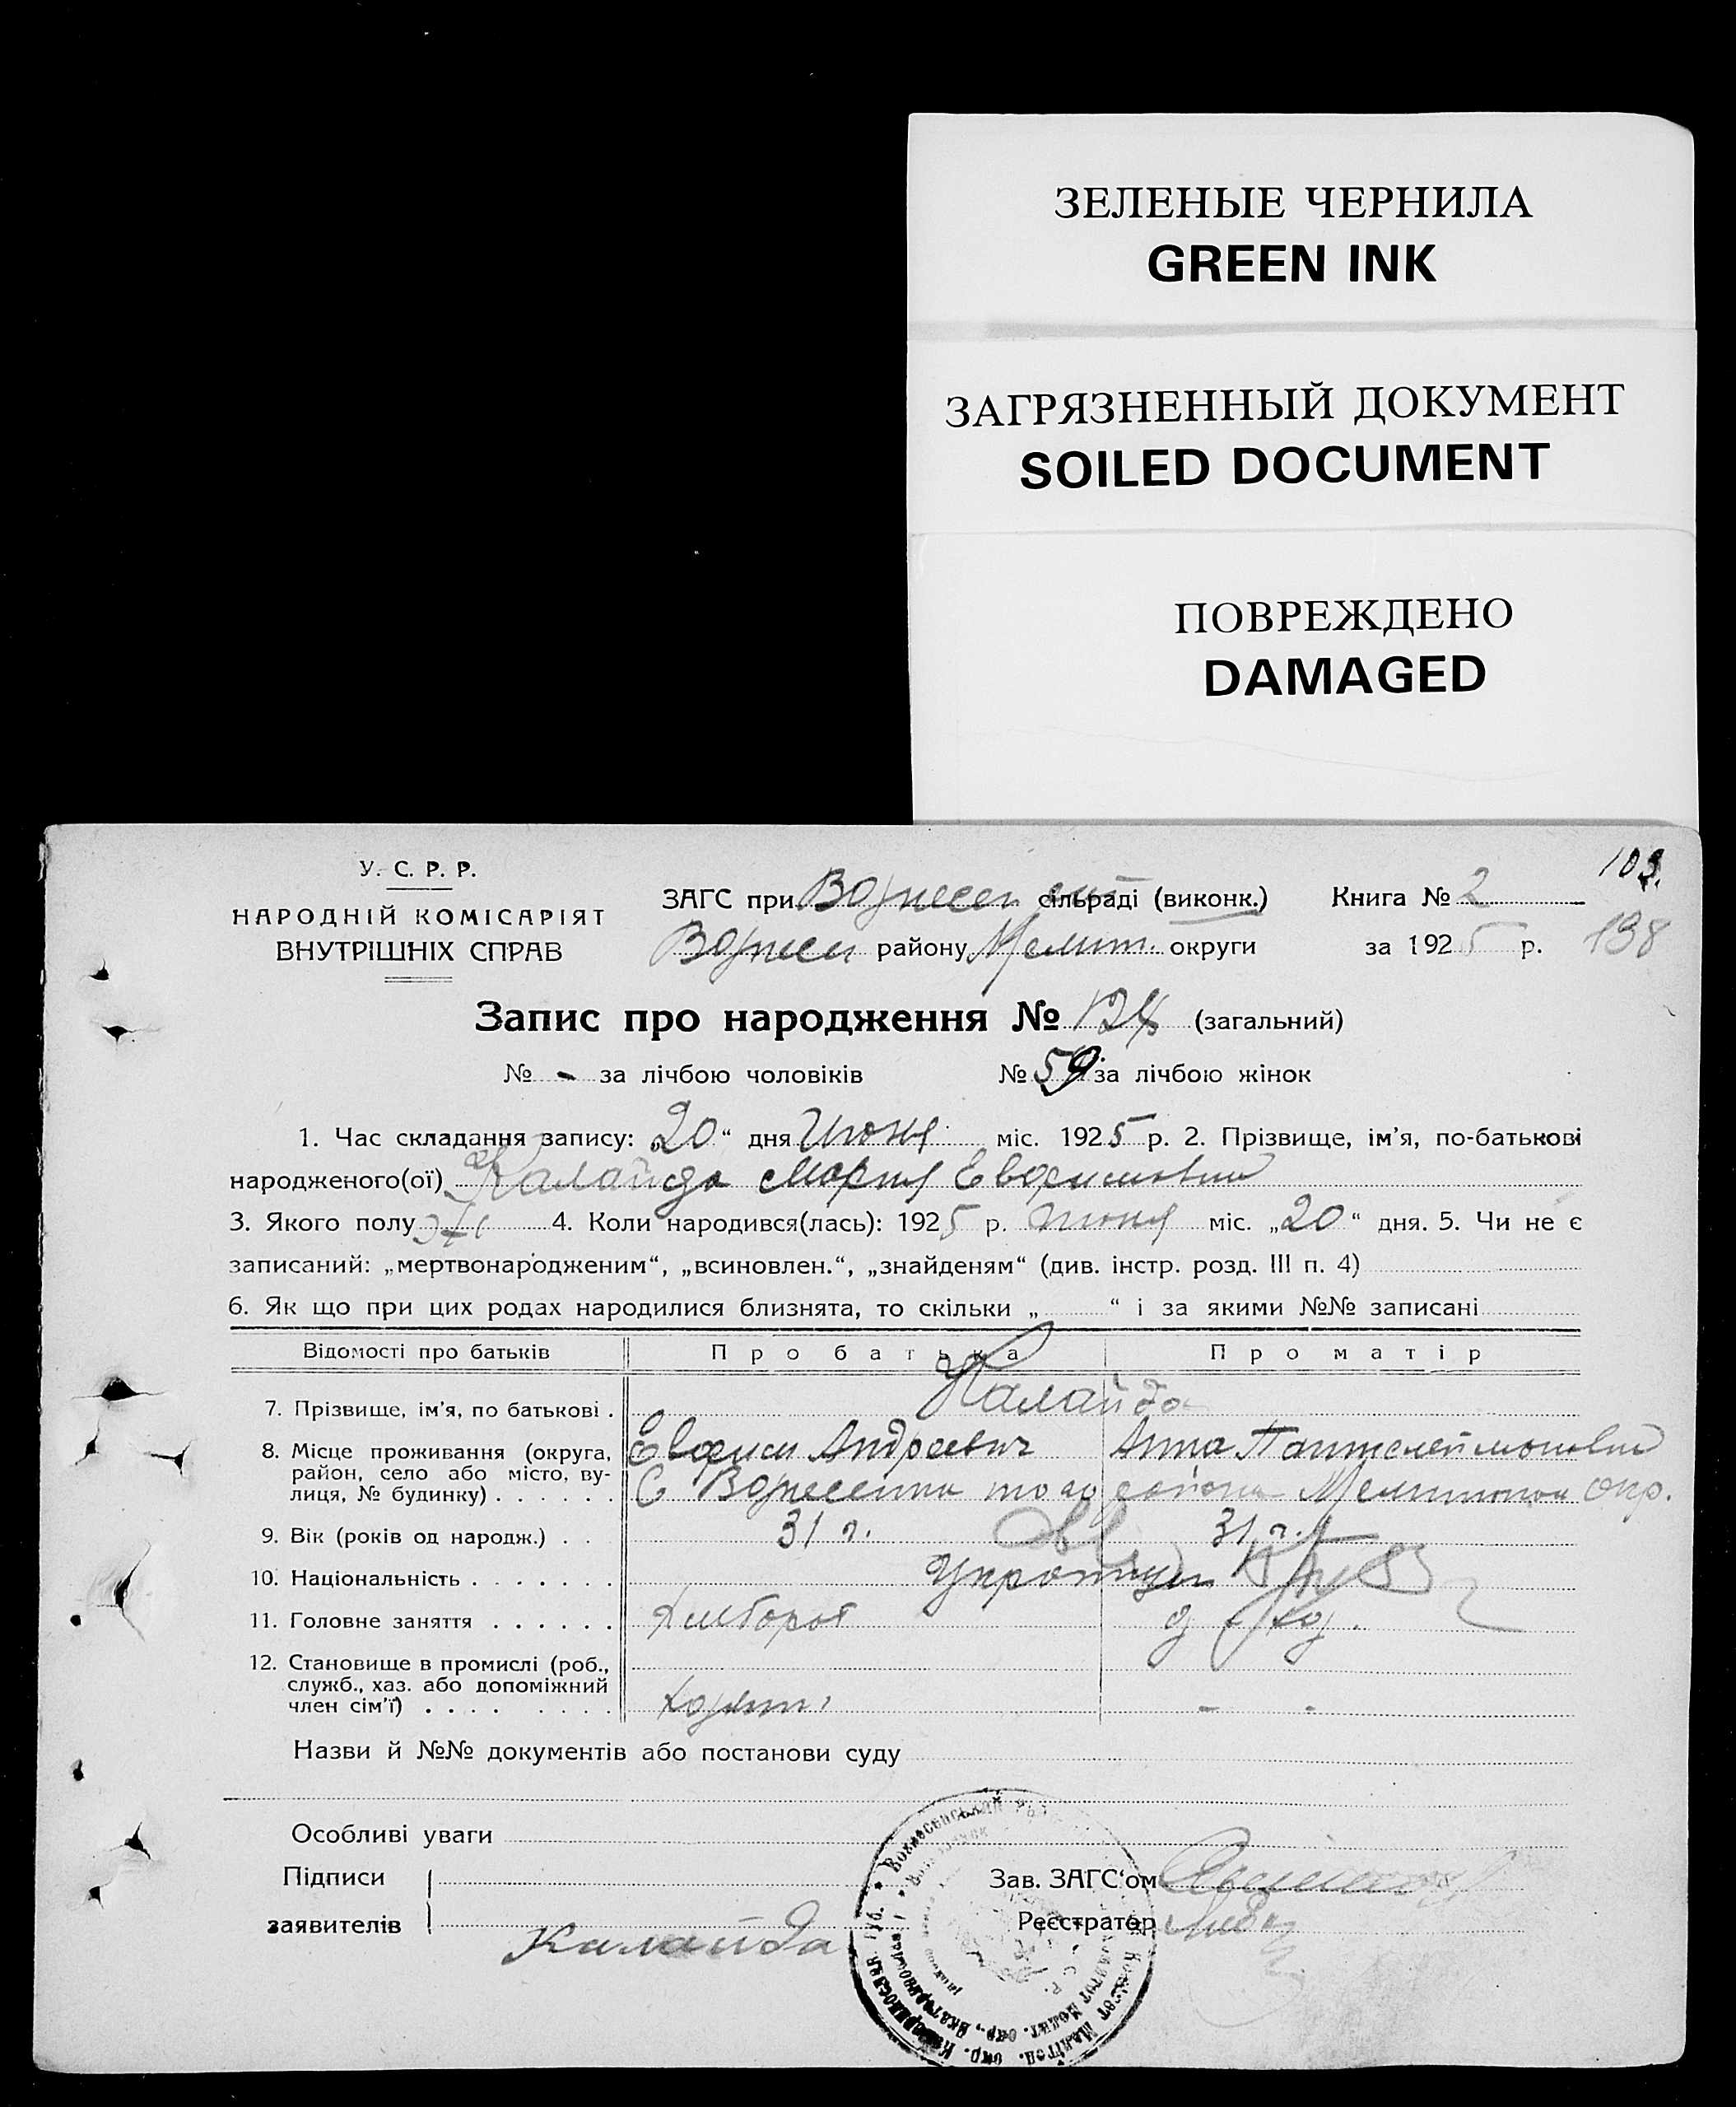 ЗЕЛЕНЫЕ ЧЕРНИЛА
GREEN INK
ЗАГРЯЗНЕННЫЙ ДОКУМЕНТ
SOILED DOCUMENT
ПОВРЕЖДЕНО
DAMAGED
103.
138
У. С. Р. Р.
НАРОДНІЙ КОМІСАРІЯТ
ВНУТРІШНІХ СПРАВ
ЗАГС при Вознесен сільраді (виконк.) Книга № 2
Вознесен району Мелит. округи за 1925 р.
Запис про народження № 124 (загальний)
№ - за лічбою чоловіків № 59 за лічбою жінок
1. Час складання запису: „20“ дня Июня міс. 1925 р. 2. Прізвище, ім’я, по-батькові
народженого(ої) Калайда Мария
3. Якого полу ж 4. Коли народився(лась): 1925 р. Июня міс. „20“ дня. 5. Чи не є
записаний: „мертвонародженим“, „всиновлен.“, „знайденям“ (див. інстр. розд. III п. 4)
6. Як що при цих родах народилися близнята, то скільки „ “ і за якими №№ записані
Відомості про батьків Про батька Про матір
7. Прізвище, ім’я, по батькові . Калайда
Андреевич Анна Пантелеймоновна
8. Місце проживання (округа,
район, село або місто, ву-
лиця, № будинку) . . . . . . С Вознесенка того района Мелитопол окр.
9. Вік (років од народж.) . . 31 г. 31 г.
10. Національність . . . . . . . Украинцы
11. Головне заняття . . . . . . Хлебороб
12. Становище в промислі (роб.,
служб., хаз. або допоміжний
член сім’ї) . . . . . . . . - -
Назви й №№ документів або постанови суду
Особливі уваги
Підписи
заявителів
Калайда
Зав. ЗАГС‘ом
Реєстратор